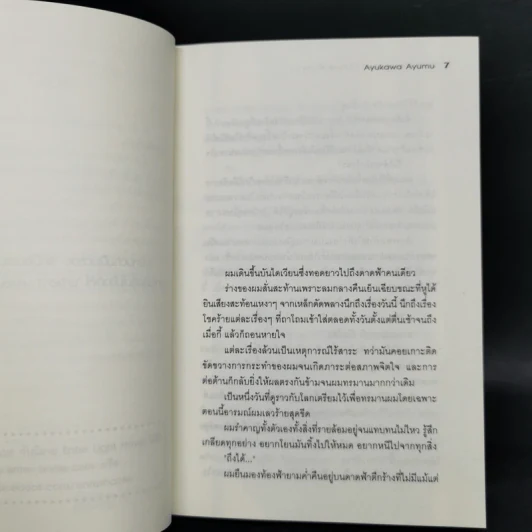 Ayukawa Ayumu 7
ผมเดินขึ้นบันไดเวียนซึ่งทอดยาวไปถึงดาดฟ้าคนเดียว
ร่างของผมสั่นสะท้านเพราะลมกลางคืนเย็นเฉียบขณะที่หูได้
ยินเสียงสะท้อนเหงาๆ จากเหล็กดัดพลางนึกถึงเรื่องวันนี้ นึกถึงเรื่อง
โชคร้ายแต่ละเรื่องๆ ที่ถาโถมเข้าใส่ตลอดทั้งวันตั้งแต่ตื่นเช้าจนถึง
เมื่อกี้ แล้วก็ถอนหายใจ
แต่ละเรื่องล้วนเป็นเหตุการณ์ไร้สาระ ทว่ามันคอยเกาะติด
ขัดขวางการกระทำของผมจนเกิดภาระต่อสภาพจิตใจ และการ
ต่อต้านก็กลับยิ่งให้ผลตรงกันข้ามจนผมทรมานมากกว่าเดิม
เป็นหนึ่งวันที่ดูราวกับโลกเตรียมไว้เพื่อทรมานผมโดยเฉพาะ
ตอนนี้อารมณ์ผมเลวร้ายสุดขีด
ผมรำคาญทั้งตัวเองทั้งสิ่งที่รายล้อมอยู่จนแทบทนไม่ไหว รู้สึก
เกลียดทุกอย่าง อยากโยนมันทิ้งไปให้หมด อยากหนีไปจากทุกสิ่ง
"ถึงได้..."
ผมยืนมองท้องฟ้ายามค่ำคืนอยู่บนดาดฟ้าตึกร้างที่ไม่มีแม้แต่